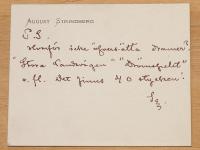 AUGUST STRINDBERG
P.S.
Hvarför icke "öfversätta dramer?"
"Stora Landsvägen" "Drömspelet"
m. fl. Det finnes 40 stycken!